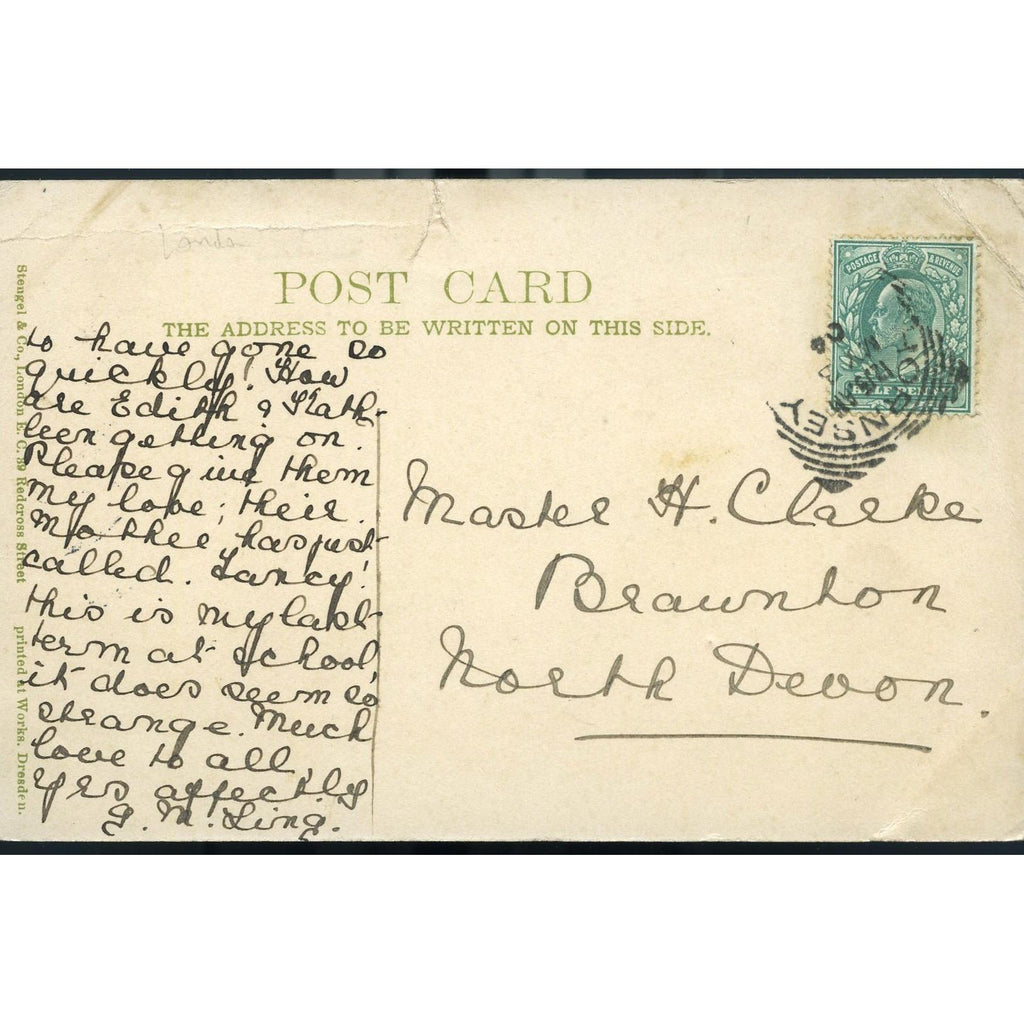 Landa
POST CARD
THE ADDRESS TO BE WRITTEN ON THIS SIDE.
POSTAGE & REVENUE
HALF PENNY
RNSEY
Stengel & Co., London E. C. 39 Redcross Street printed at Works. Dresden.
to have gone so
quickly! How
are Edith & Kath-
leen getting on.
Please give them
my love; their
mother has just
called. Fancy!
this is my last
term at school,
it does seem so
strange. Much
love to all,
Yrs affectly
G. M. Ling.
Master H. Clarke
Braunton
North Devon.